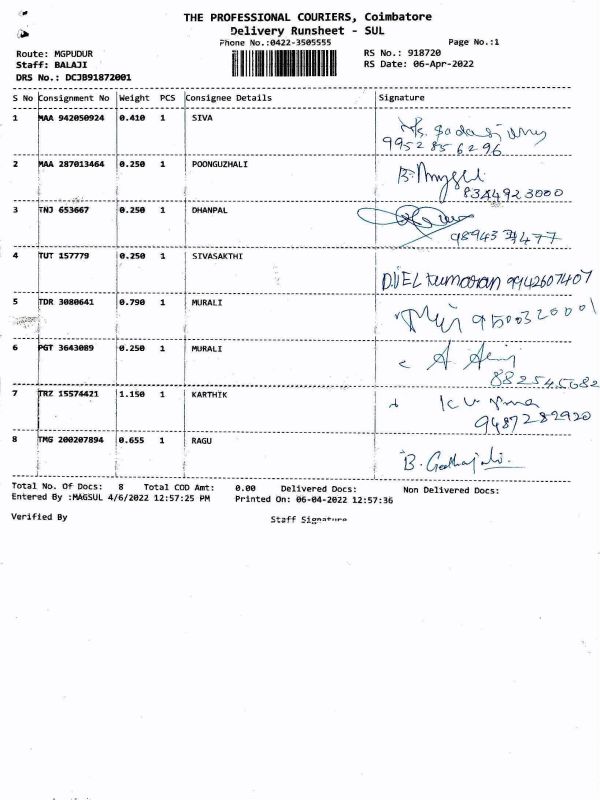 THE PROFESSIONAL COURIERS, Coimbatore
Delivery Runsheet - SUL
Phone No.:0422-3505555
Page No.:1
Route: MGPUDUR
RS No.: 918720
Staff: BALAJI
RS Date: 06-Apr-2022
DRS No.: DCJB91872001
S No Consignment No Weight PCS Consignee Details Signature
1 MAA 942050924 0.410 1 SIVA
9952856296
2 MAA 287013464 0.250 1 POONGUZHALI
8344923000
3 TNJ 653667 0.250 1 DHANPAL
4 TUT 157779 0.250 1 SIVASAKTHI
kumaran 9942607407
5 TDR 3080641 0.790 1 MURALI
9500320001
6 PGT 3643089 0.250 1 MURALI
A.
7 TRZ 15574421 1.150 1 KARTHIK
9487282920
8 TMG 200207894 0.655 1 RAGU
B.
Total No. Of Docs: 8 Total COD Amt: 0.00 Delivered Docs: Non Delivered Docs:
Entered By :MAGSUL 4/6/2022 12:57:25 PM Printed On: 06-04-2022 12:57:36
Verified By Staff Signature